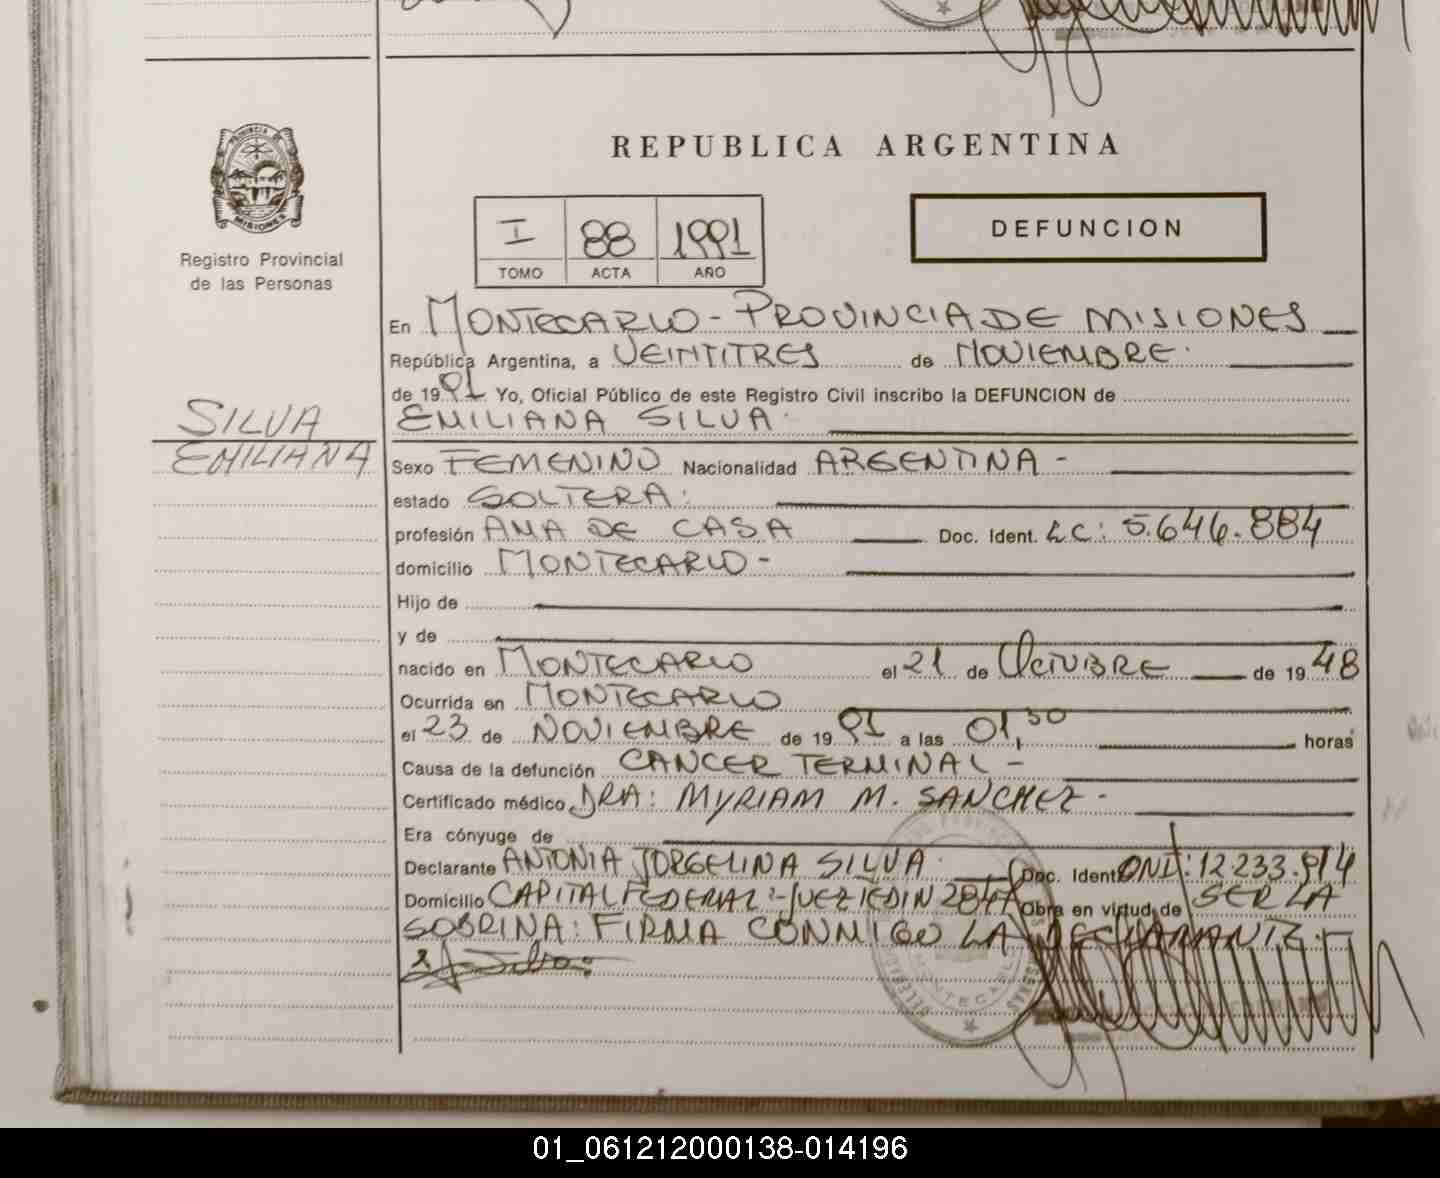 REPUBLICA ARGENTINA
PROVINCIA DE
MISIONES
Registro Provincial
de las Personas
I 88 1991
TOMO ACTA AÑO
DEFUNCION
En MONTECARLO - PROVINCIA DE MISIONES
República Argentina, a VEINTITRES de NOVIEMBRE.
de 1991 Yo, Oficial Público de este Registro Civil inscribo la DEFUNCION de
SILVA
EMILIANA
EMILIANA SILVA.
Sexo FEMENINO Nacionalidad ARGENTINA -
estado SOLTERA:
profesión AMA DE CASA Doc. Ident. LC: 5.646.884
domicilio MONTECARLO -
Hijo de
y de
nacido en MONTECARLO el 21 de OCTUBRE de 1948
Ocurrida en MONTECARLO
el 23 de NOVIEMBRE de 1991 a las 01,30 horas
Causa de la defunción CANCER TERMINAL -
Certificado médico DRA: MYRIAM M. SANCHEZ -
Era cónyuge de
Declarante ANTONIA JORGELINA SILVA. Doc. Ident. DNI: 12.233.914
Domicilio CAPITAL FEDERAL - Obra en virtud de SER LA
SOBRINA: FIRMA CONMIGO LA DECLARANTE.
01_061212000138-014196